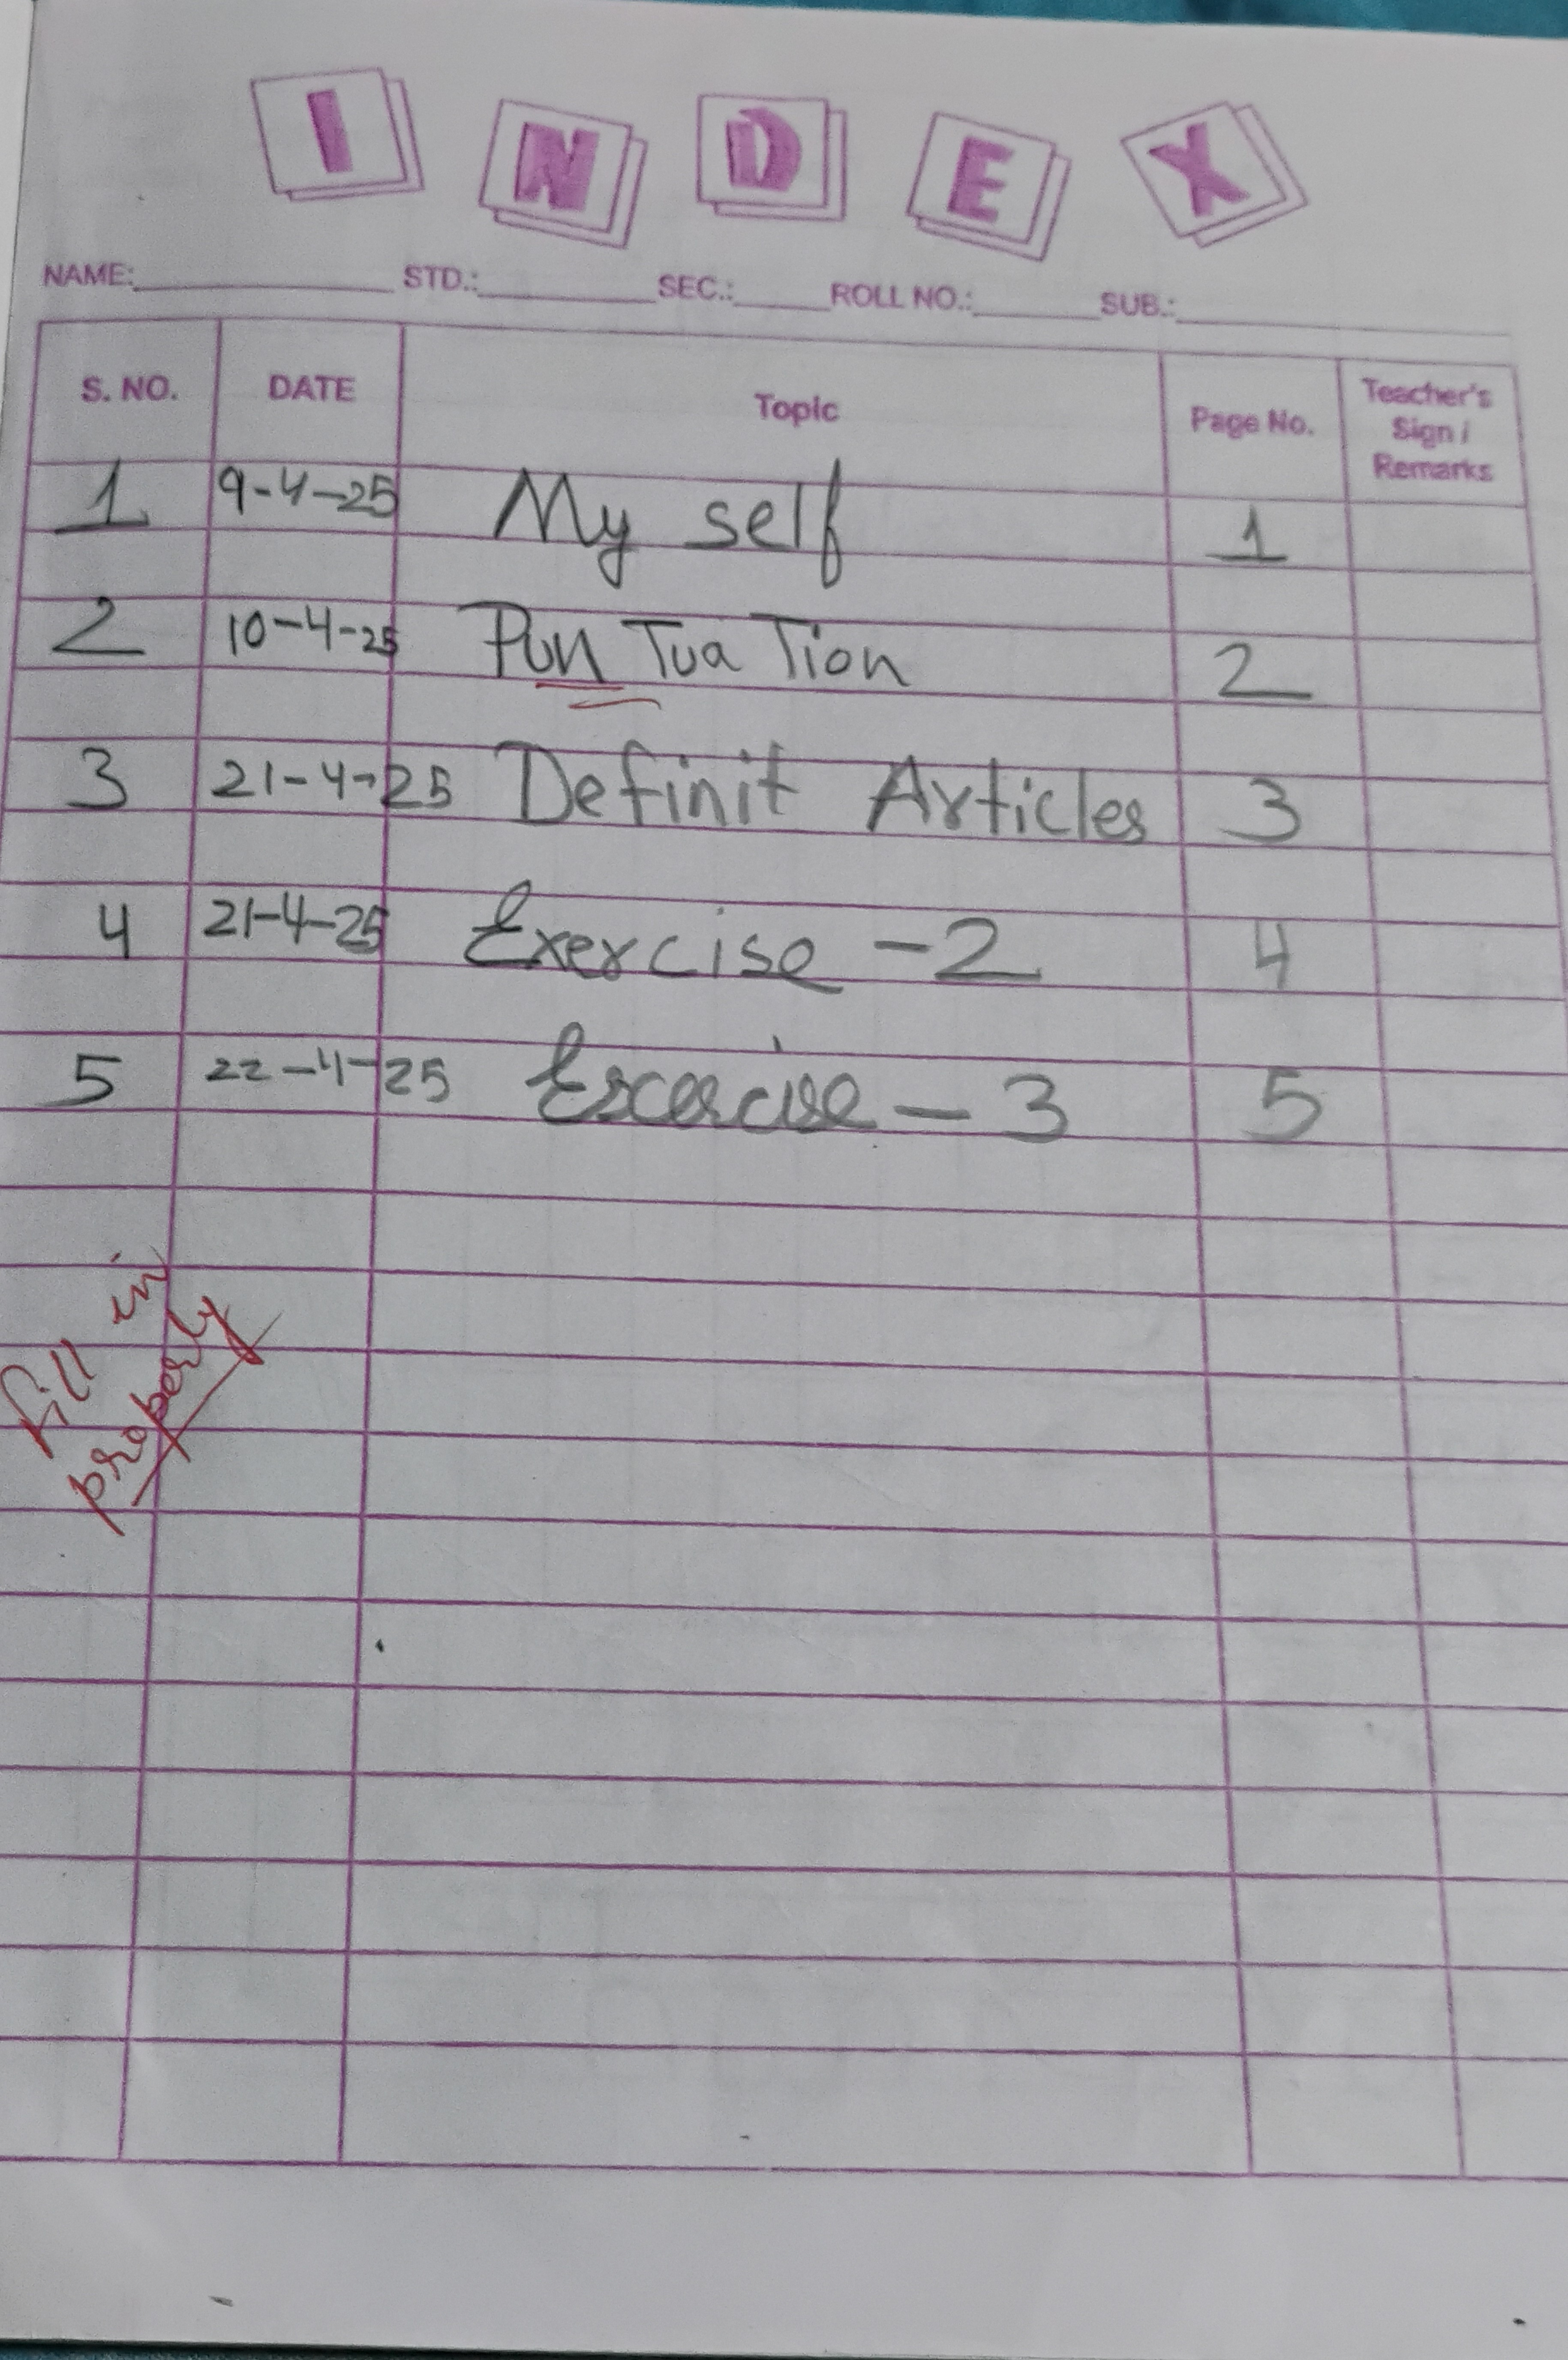 INDEX
NAME: STD.: SEC.: ROLL NO.: SUB.:
S. NO. DATE Topic Page No. Teacher's Sign / Remarks
1 9-4-25 My self 1
2 10-4-25 Pun Tua Tion 2
3 21-4-25 Definit Articles 3
4 21-4-25 Exercise - 2 4
5 22-4-25 Excercise - 3 5
fill in
properly